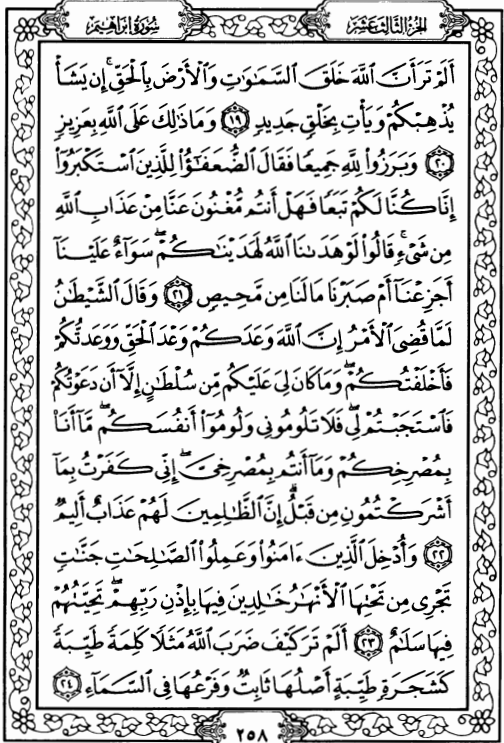 الجزء الثالث عشر
سورة إبراهيم
أَلَمْ تَرَ أَنَّ اللَّهَ خَلَقَ السَّمَٰوَٰتِ وَالْأَرْضَ بِالْحَقِّ ۚ إِن يَشَأْ
يُذْهِبْكُمْ وَيَأْتِ بِخَلْقٍ جَدِيدٍ ١٩ وَمَا ذَٰلِكَ عَلَى اللَّهِ بِعَزِيزٍ
٢٠ وَبَرَزُوا لِلَّهِ جَمِيعًا فَقَالَ الضُّعَفَٰٓؤُا لِلَّذِينَ اسْتَكْبَرُوٓا
إِنَّا كُنَّا لَكُمْ تَبَعًا فَهَلْ أَنتُم مُّغْنُونَ عَنَّا مِنْ عَذَابِ اللَّهِ
مِن شَيْءٍ ۚ قَالُوا لَوْ هَدَىٰنَا اللَّهُ لَهَدَيْنَٰكُمْ ۖ سَوَآءٌ عَلَيْنَآ
أَجَزِعْنَآ أَمْ صَبَرْنَا مَا لَنَا مِن مَّحِيصٍ ٢١ وَقَالَ الشَّيْطَٰنُ
لَمَّا قُضِيَ الْأَمْرُ إِنَّ اللَّهَ وَعَدَكُمْ وَعْدَ الْحَقِّ وَوَعَدتُّكُمْ
فَأَخْلَفْتُكُمْ ۖ وَمَا كَانَ لِيَ عَلَيْكُم مِّن سُلْطَٰنٍ إِلَّآ أَن دَعَوْتُكُمْ
فَاسْتَجَبْتُمْ لِي ۖ فَلَا تَلُومُونِي وَلُومُوٓا أَنفُسَكُم ۖ مَّآ أَنَا۠
بِمُصْرِخِكُمْ وَمَآ أَنتُم بِمُصْرِخِيَّ ۖ إِنِّي كَفَرْتُ بِمَآ
أَشْرَكْتُمُونِ مِن قَبْلُ ۗ إِنَّ الظَّٰلِمِينَ لَهُمْ عَذَابٌ أَلِيمٌ
٢٢ وَأُدْخِلَ الَّذِينَ ءَامَنُوا وَعَمِلُوا الصَّٰلِحَٰتِ جَنَّٰتٍ
تَجْرِي مِن تَحْتِهَا الْأَنْهَٰرُ خَٰلِدِينَ فِيهَا بِإِذْنِ رَبِّهِمْ ۖ تَحِيَّتُهُمْ
فِيهَا سَلَٰمٌ ٢٣ أَلَمْ تَرَ كَيْفَ ضَرَبَ اللَّهُ مَثَلًا كَلِمَةً طَيِّبَةً
كَشَجَرَةٍ طَيِّبَةٍ أَصْلُهَا ثَابِتٌ وَفَرْعُهَا فِي السَّمَآءِ ٢٤
٢٥٨